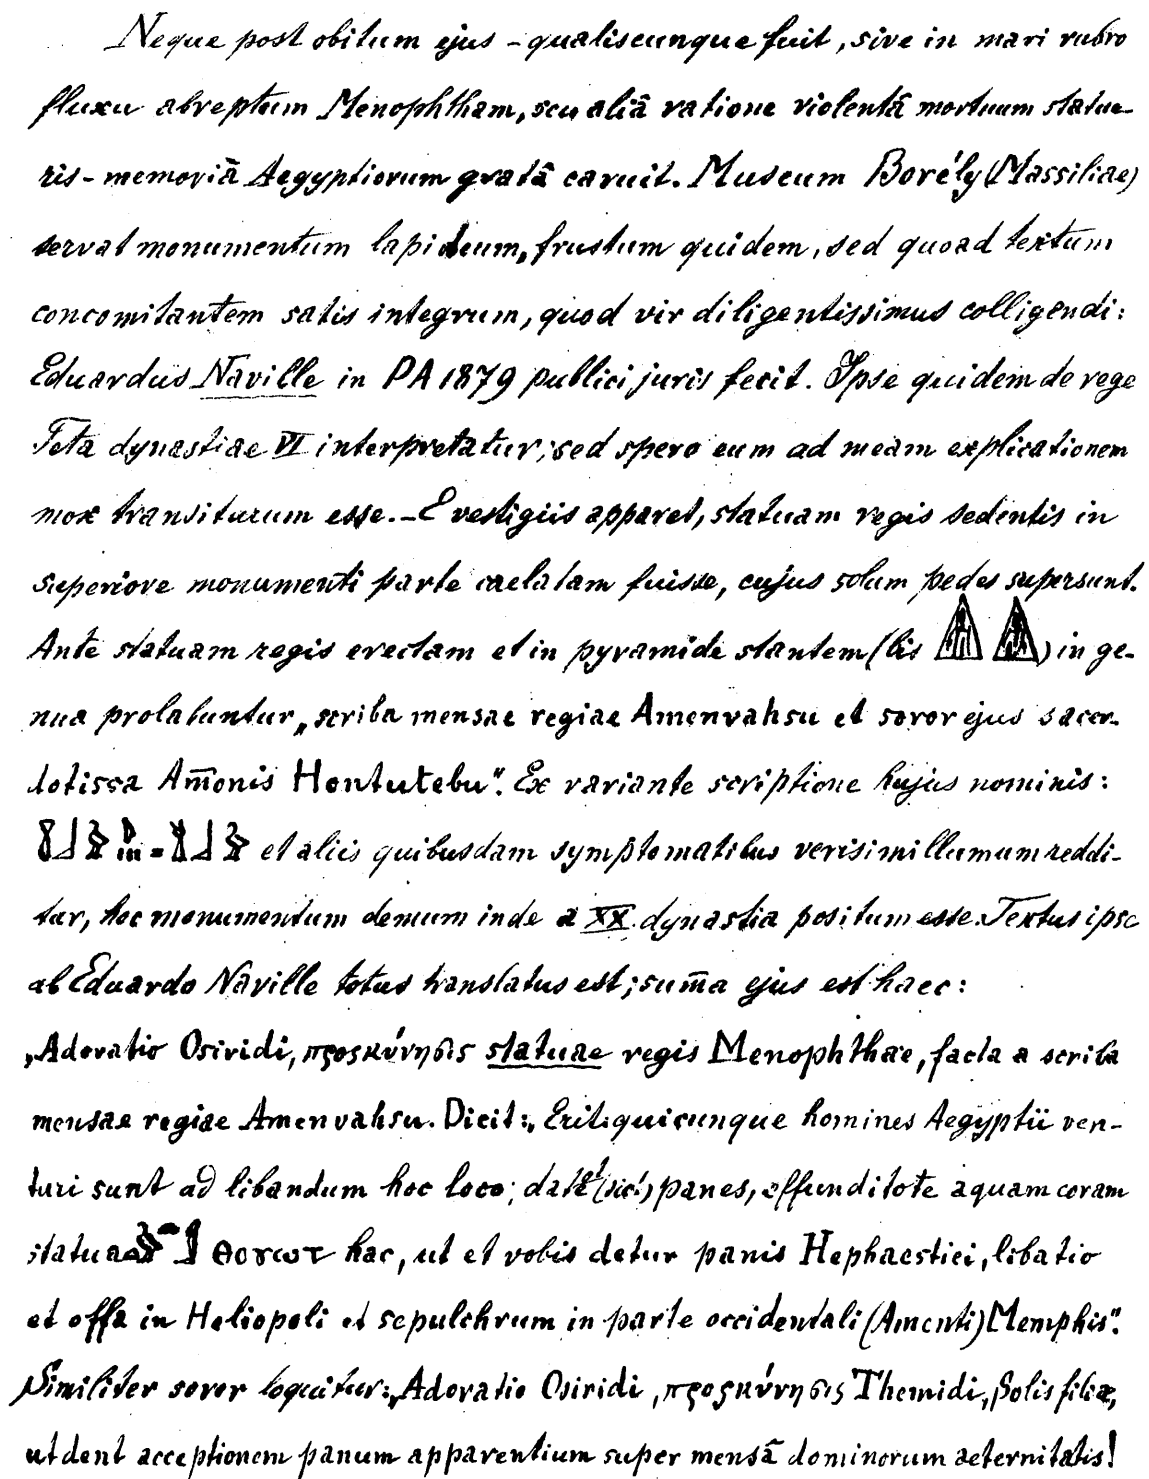 Neque post obitum ejus – qualiscunque fuit, sive in mari rubro
fluxu abreptum Menophtham, seu aliâ ratione violentâ mortuum statue-
ris – memoriâ Aegyptiorum gratâ caruit. Museum Borély (Massiliae)
servat monumentum lapideum, frustum quidem, sed quoad textum
concomitantem satis integrum, quod vir diligentissimus colligendi:
Eduardus Naville in PA 1879 publici juris fecit. Ipse quidem de rege
Teta dynastiae VI interpretatur; sed spero eum ad meam explicationem
mox transiturum esse. – E vestigiis apparet, statuam regis sedentis in
superiore monumenti parte caelatam fuisse, cujus solum pedes supersunt.
Ante statuam regis erectam et in pyramide stantem (bis ) in ge-
nua prolabuntur „scriba mensae regiae Amenvahsu et soror ejus sacer-
dotissa Am̄onis Hontutebu“. Ex variante scriptione hujus nominis:
et aliis quibusdam symptomatibus verisimillumum reddi-
tur, hoc monumentum demum inde a XX. dynastia positum esse. Textus ipse
ab Eduardo Naville totus translatus est; sum̄a ejus est haec:
„Adoratio Osiridi, προσκύνησις statuae regis Menophthae, facta a scriba
mensae regiae Amenvahsu. Dicit: „Erit: quicunque homines Aegyptii ven-
turi sunt ad libandum hoc loco; date (sic!) panes, effunditote aquam coram
statua ⲑⲟⲩⲱⲧ hac, ut et vobis detur panis Hephaestiei, libatio
et offa in Heliopoli et sepulchrum in parte occidentali (Amenti) Memphis“.
Similiter soror loquitur: „Adoratio Osiridi, προσκύνησις Themidi, Solis filiae,
ut dent acceptionem panum apparentium super mensâ dominorum aeternitatis!